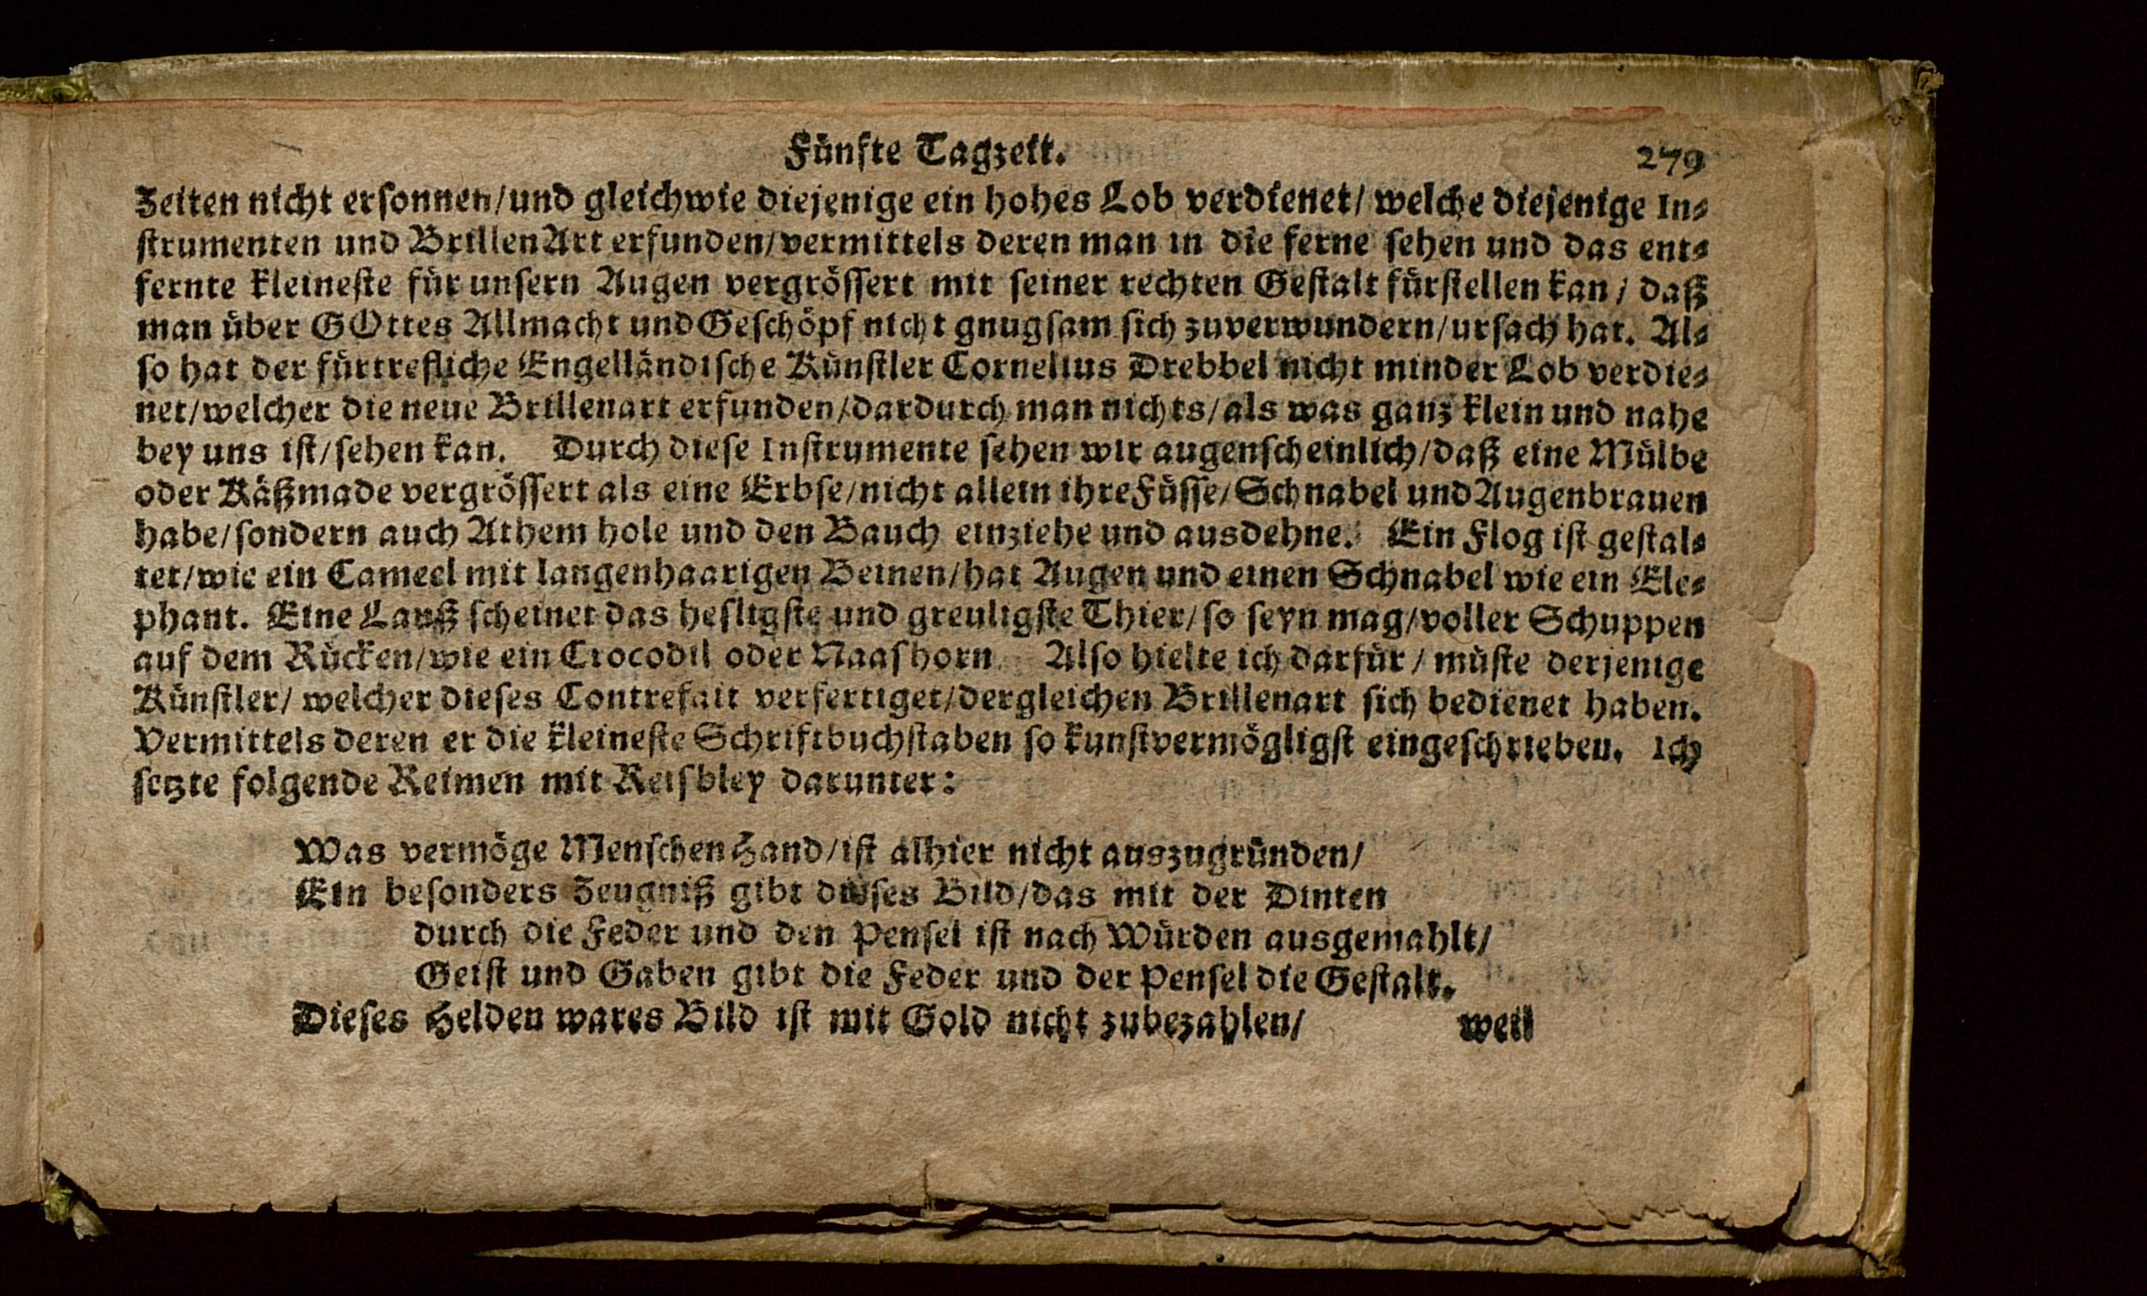 Fünfte Tagzeit.
279
Zeiten nicht ersonnen/und gleichwie diejenige ein hohes Lob verdienet/ welche diejenige In-
strumenten und BrillenArt erfunden/vermittels deren man in die ferne sehen und das ent-
fernte kleineste für unsern Augen vergrössert mit seiner rechten Gestalt fürstellen kan/ daß
man über GOttes Allmacht und Geschöpf nicht gnugsam sich zuverwundern/ursach hat. Al-
so hat der fürtrefliche Engelländische Künstler Cornelius Drebbel nicht minder Lob verdie-
net/welcher die neue Brillenart erfunden/dardurch man nichts/als was ganz klein und nahe
bey uns ist/sehen kan. Durch diese Instrumente sehen wir augenscheinlich/daß eine Mülbe
oder Käßmade vergrössert als eine Erbse/nicht allein ihre Füsse/Schnabel und Augenbrauen
habe/sondern auch Athem hole und den Bauch einziehe und ausdehne. Ein Flog ist gestal-
tet/wie ein Cameel mit langenhaarigen Beinen/hat Augen und einen Schnabel wie ein Ele-
phant. Eine Lauß scheinet das hesligste und greuligste Thier/so seyn mag/voller Schuppen
auf dem Rücken/wie ein Crocodil oder Naashorn. Also hielte ich darfür/ müste derjenige
Künstler/ welcher dieses Contrefait verfertiget/dergleichen Brillenart sich bedienet haben.
Vermittels deren er die kleineste Schriftbuchstaben so kunstvermögligst eingeschrieben. Ich
setzte folgende Reimen mit Reisbley darunter:
Was vermöge Menschen Hand/ist alhier nicht auszugründen/
Ein besonders Zeugniß gibt dieses Bild/das mit der Dinten
durch die Feder und den Pensel ist nach Würden ausgemahlt/
Geist und Gaben gibt die Feder und der Pensel die Gestalt.
Dieses Helden wares Bild ist mit Gold nicht zubezahlen/
weil